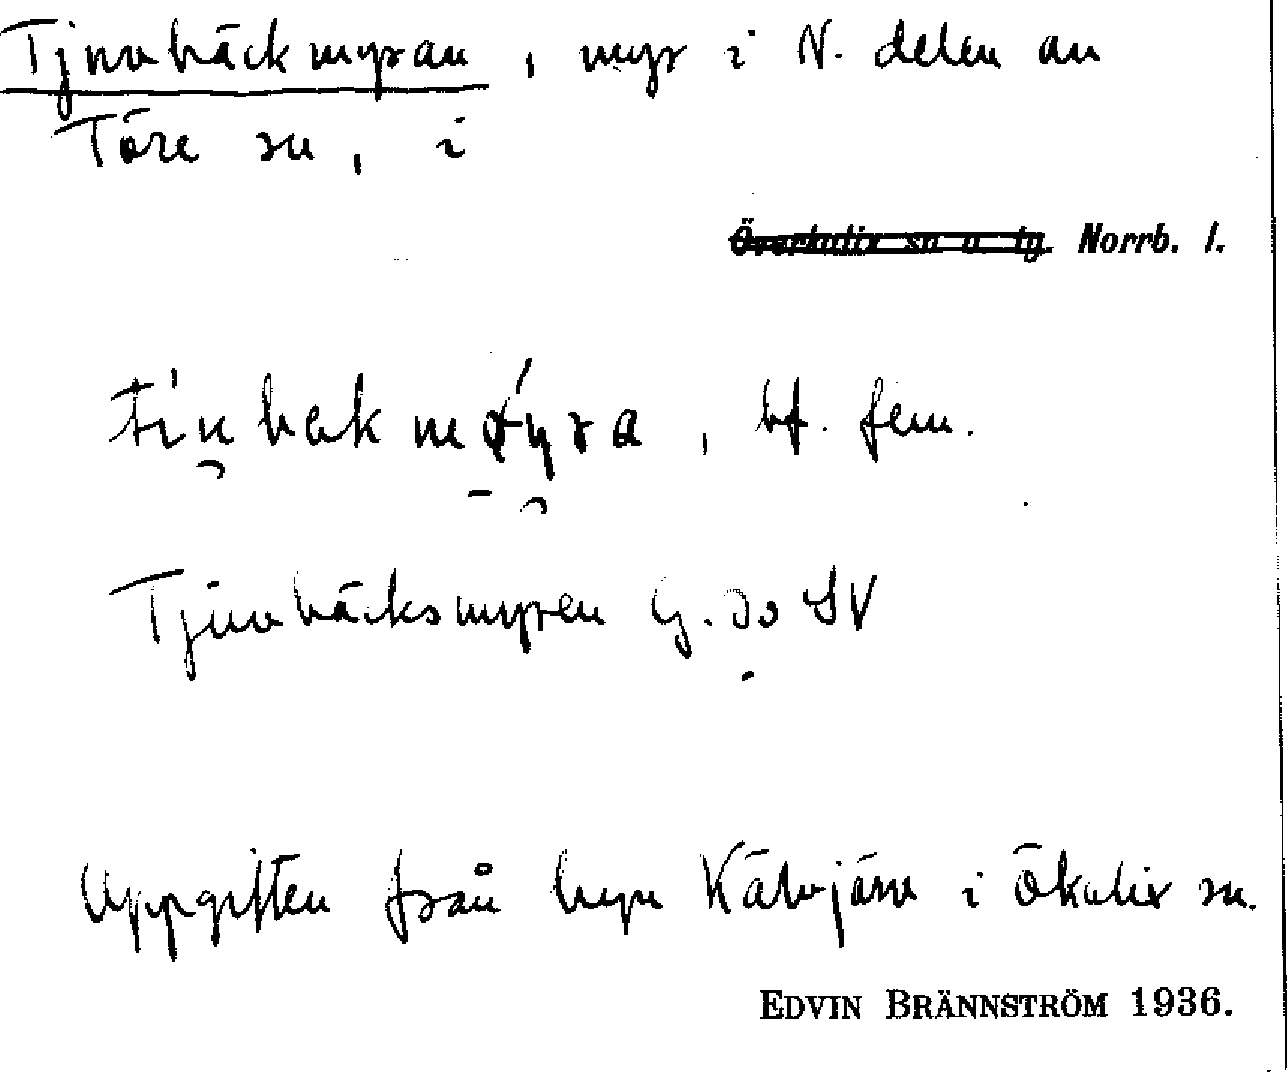 Tjnobäckmyran, myr i N. delen av
Töre sn, i
Överkalix sn o. tg. Norrb. l.
bf. fem.
Tjinobäcksmyren G. do SV
Uppgiften från byn Kälvjärv i Ökalix sn.
EDVIN BRÄNNSTRÖM 1936.